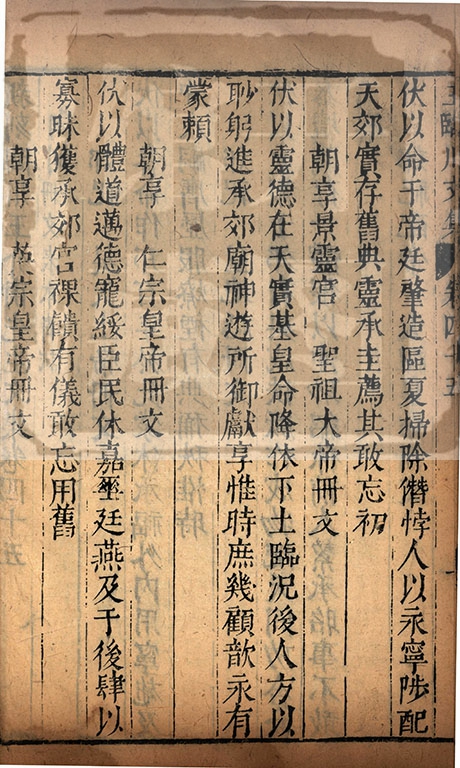 伏以命于帝廷肇造區夏掃除僭悖人以永寧陟配
天郊實存舊典靈承主薦其敢忘初
朝享景靈宮 聖祖大帝冊文
伏以靈德在天實基皇命降依下土臨況後人方以
眇躬進承郊廟神遊所御獻享惟時庶幾顧歆永有
蒙賴
朝享 仁宗皇帝冊文
伏以體道邁德寵綏臣民休嘉垩廷燕及于後肆以
寡昧獲承郊宮祼饋有儀敢忘用舊
朝享 英宗皇帝冊文